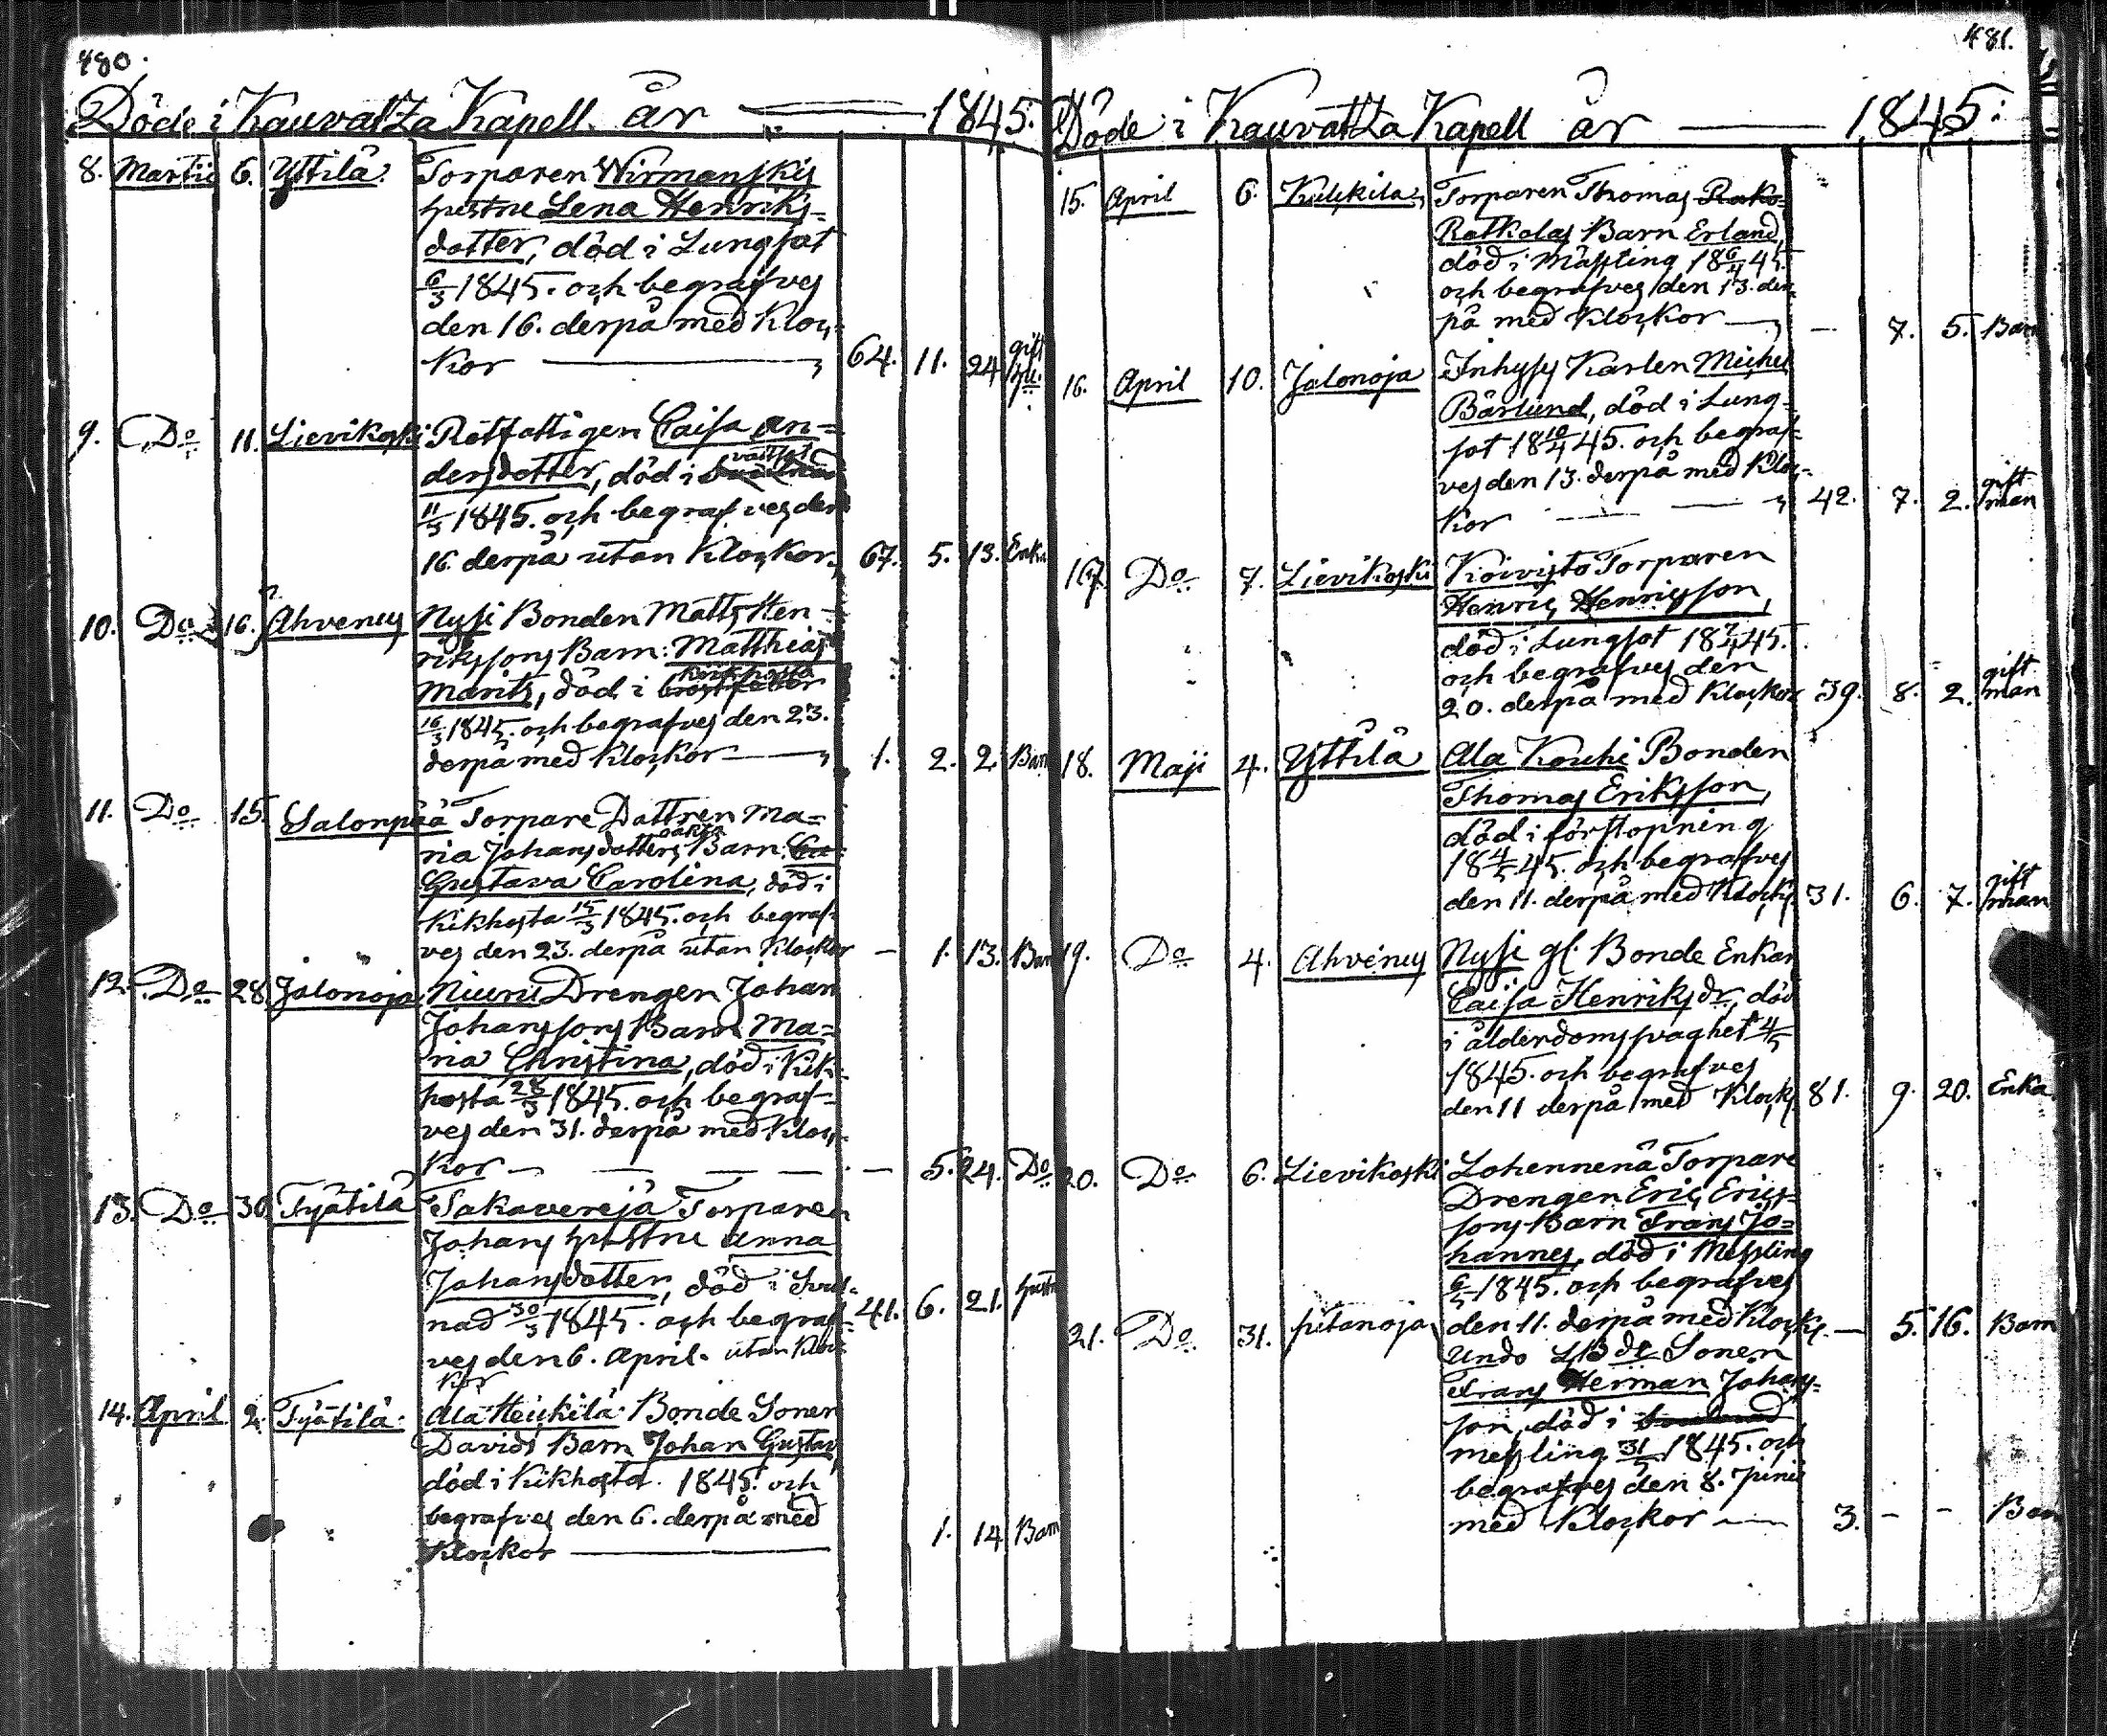 480.
Döde i Kauvatza Kapell. år — 1845.
8. Martii 6. Yttilä. Torparen Wirmanskis
hustru Lena Henriks-
dotter, död i Lungsot
6/3 1845. och begrafves
den 16. derpå med Kloc-
kor — 64. 11. 24 gift hu.
9. Do 11. Lievikoski Rotfattigen Caisa An-
dersdotter, död i vattsot
11/3 1845. och begrafves den
16. derpå utan Klockor. 67. 5. 13. Enk.
10. Do 16. Ahvenus Nysi Bonden Matts Hen-
rikssons Barn: Matthias
Mauritz, död i kikhosta bröstfeber
16/3 1845. och begrafves den 23.
derpå med Klockor — 1. 2. 2. Barn
11. Do 15. Salonpää Torpare Dottren Ma-
ria Johansdotters oäkta Barn
Gustava Carolina, död i
Kikhosta 15/3 1845. och begraf-
ves den 23. derpå utan Klockor — 1. 13. Barn
12. Do 28 Jalonoja Niuru Drengen Johan
Johanssons Barn Ma-
ria Christina, död i Kik-
hosta 28/3 1845. och begraf-
ves den 31. derpå med Kloc-
kor — 5. 24. Do
13. Do 30 Tyätilä Sakavereja Torparen
Johans hustru Anna
Johansdotter, död i Svul-
nad 30/3 1845. och begraf- 41. 6. 21. hustru
ves den 6. April. utan Kloc-
kor
14. April 2. Tyätilä. Ala Heickilä Bonde Sonen
Davids Barn Johan Gustav
död i Kikhosta. 1845. och
begrafves den 6. derpå med
Klockor — 1. 14 Barn
481.
Döde i Kauvatza Kapell år — 1845.
15. April 6. Kulckila, Torparen Thomas Rako-
Ratkolas Barn Erland,
död i Mässling 18 6/4 45.
och begrafves den 13. der-
på med Klockor — 7. 5. Barn
16. April 10. Jalonoja Inhyses Karlen Michel
Bärlund, död i Lung-
sot 18 10/4 45. och begraf-
ves den 13. derpå med Kloc-
kor — 42. 7. 2. gift man
17. Do 7. Lievikoski Koivisto Torparen
Henric Henricsson,
död i Lungsot 18 7/4 45.
och begrafves den
20. derpå med Klockor 39. 8. 2. gift man
18. Maji 4. Yttilä Ala Kouhi Bonden
Thomas Eriksson,
död i förstopning
18 4/5 45. och begrafves
den 11. derpå med Klock. 31. 6. 7. gift man
19. Do 4. Ahvenus Nysi gl. Bonde Enkan
Caisa Henriksdr, död
i ålderdomssvaghet 4/5
1845. och begrafves
den 11 derpå med Klock. 81. 9. 20. Enka
20. Do 6. Lievikoski Lohennenä Torpare
Drengen Eric Erics-
sons Barn Frans Jo-
hannes, död i Messling
6/5 1845. och begrafves
den 11. derpå med Klock. — 5. 16. Barn
21. Do 31. Pitanoja Undo Sonen
Frans Herman Johans-
son, död i
messling 31/5 1845. och
begrafves den 8. Junii
med Klockor — 3. - - Barn